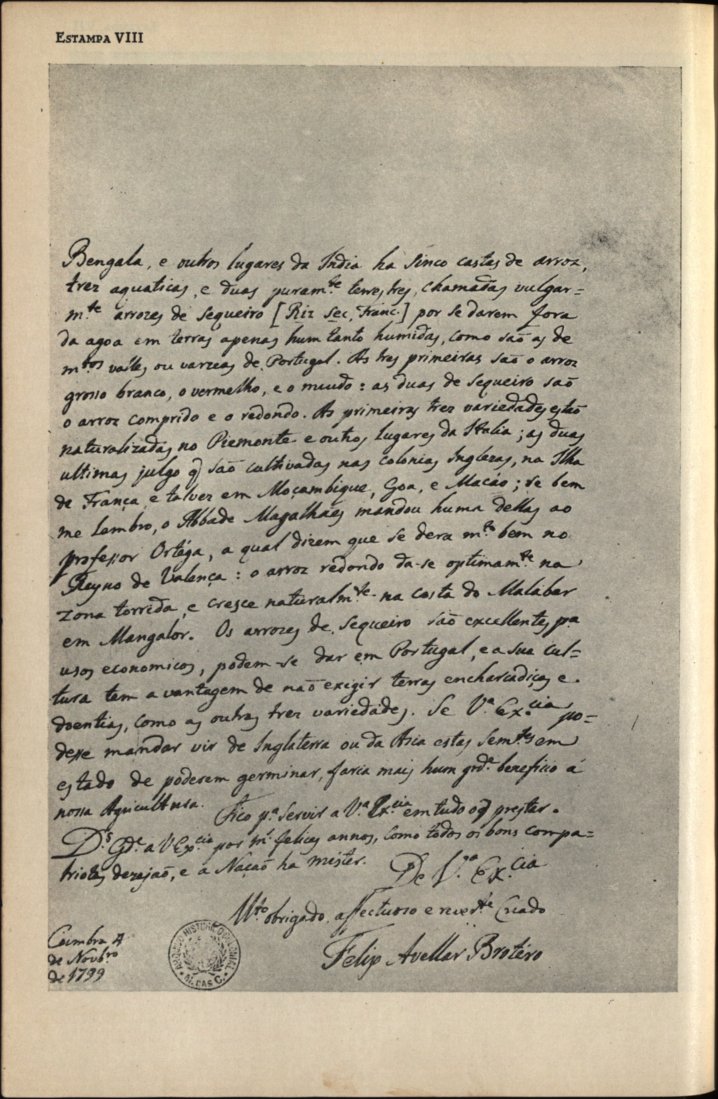 ESTAMPA VIII
Bengala, e outros lugares da India ha sinco castas de arroz,
trez aquaticas, e duas puram.te terrestres, chamadas vulgar=
m.te arrozes de sequeiro [Riz sec. Franc.] por se darem fora
da agoa em terras apenas hum tanto humidas, como são as de
m.tos valles ou varzeas de Portugal. As tres primeiras são o arroz
grosso branco, o vermelho, e o miudo: as duas de sequeiro são
o arroz comprido e o redondo. As primeiras trez variedades estão
naturalizadas no Piemonte e outros lugares da Italia; as duas
ultimas julgo q̃ são cultivadas nas colonias Inglezas, na Ilha
de França, e talvez em Moçambique, Goa, e Macáo; se bem
me lembro, o Abbade Magalhaẽs mandou huma dellas ao
professor Ortéga, a qual dizem que se dera m.to bem no
Reyno de Valença: o arroz redondo da-se optimam.te na
zona torrida, e cresce naturalm.te na costa do Malabar
em Mangalor. Os arrozes de sequeiro são excellentes pa
usos economicos, podem-se dar em Portugal, e a sua cul=
tura tem a vantagem de não exigir terras encharcadiças e
doentias, como as outras trez variedades. Se V.a Ex.cia po=
desse mandar vir de Inglaterra ou da Asia estas sem.tes em
estado de poderem germinar, faria mais hum grd.e beneficio á
nossa Agricultura. Fico p.a servir a V.a Ex.cia em tudo o q̃ prestar.
D.s G.de a V Ex.cia por m.s felices annos, como todos os bons compa=
triotas dezejão, e a Nação ha mister. De V.a Ex.cia
M.to obrigado, affectuoso e rever.te Criado
Coimbra 4
de Novbro
de 1799
Felix Avellar Brotéro
ARQUIVO HISTÓRICO COLONIAL